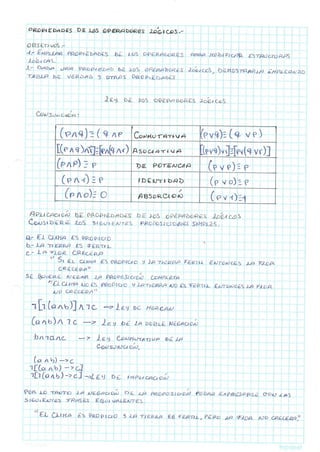 PROPIEDADES DE LOS OPERADORES LÓGICOS.-
OBJETIVOS.-
1.- EMPLEAR PROPIEDADES DE LOS OPERADORES PARA MODIFICAR ESTRUCTURAS
LÓGICAS.
2.- DADA UNA PROPIEDAD DE LOS OPERADORES LÓGICOS, DEMOSTRARLA EMPLEANDO
TABLA DE VERDAD Y OTRAS PROPIEDADES
LEY DE LOS OPERADORES LÓGICOS
CONJUNCIÓN:
(P∧q)≡(q∧P) CONMUTATIVA (P∨q)≡(q∨P)
[(P∧q)∧r]≡[P∧(q∧r)] ASOCIATIVA [(P∨q)∨r]≡[P∨(q∨r)]
(P∧P)≡P DE POTENCIA (P∨P)≡P
(P∧1)≡P IDENTIDAD (P∨0)≡P
(P∧0)≡0 ABSORCIÓN (P∨1)≡1
APLICACIÓN DE PROPIEDADES DE LOS OPERADORES LÓGICOS
CONSIDERE LOS SIGUIENTES PROPOSICIONES SIMPLES.
a- EL CLIMA ES PROPICIO
b- LA TIERRA ES FERTIL
c- LA FLOR CRECERA
"SI EL CLIMA ES PROPICIO Y LA TIERRA FERTIL ENTONCES LA FLOR
CRECERA"
SE QUIERE NEGAR LA PROPOSICIÓN COMPLETA
"EL CLIMA NO ES PROPICIO Y LA TIERRA NO ES FERTIL ENTONCES LA FLOR
NO CRECERA"
¬[¬(a∧b)]∧¬c → LEY DE MORGAN
(a∧b)∧¬c → LEY DE LA DOBLE NEGACIÓN
b∧¬a∧c → LEY CONMUTATIVA DE LA
CONJUNCIÓN.
(a∧b)→c
¬[(a∧b)→c]
¬[¬(a∧b)→c] → LEY DE IMPLICACIÓN
POR LO TANTO LA NEGACIÓN DE LA PROPOSICIÓN PODRA EXPRESARSE CON LAS
SIGUIENTES FRASES EQUIVALENTES.
"EL CLIMA ES PROPICIO Y LA TIERRA ES FERTIL, PERO LA FLOR NO CRECERA."